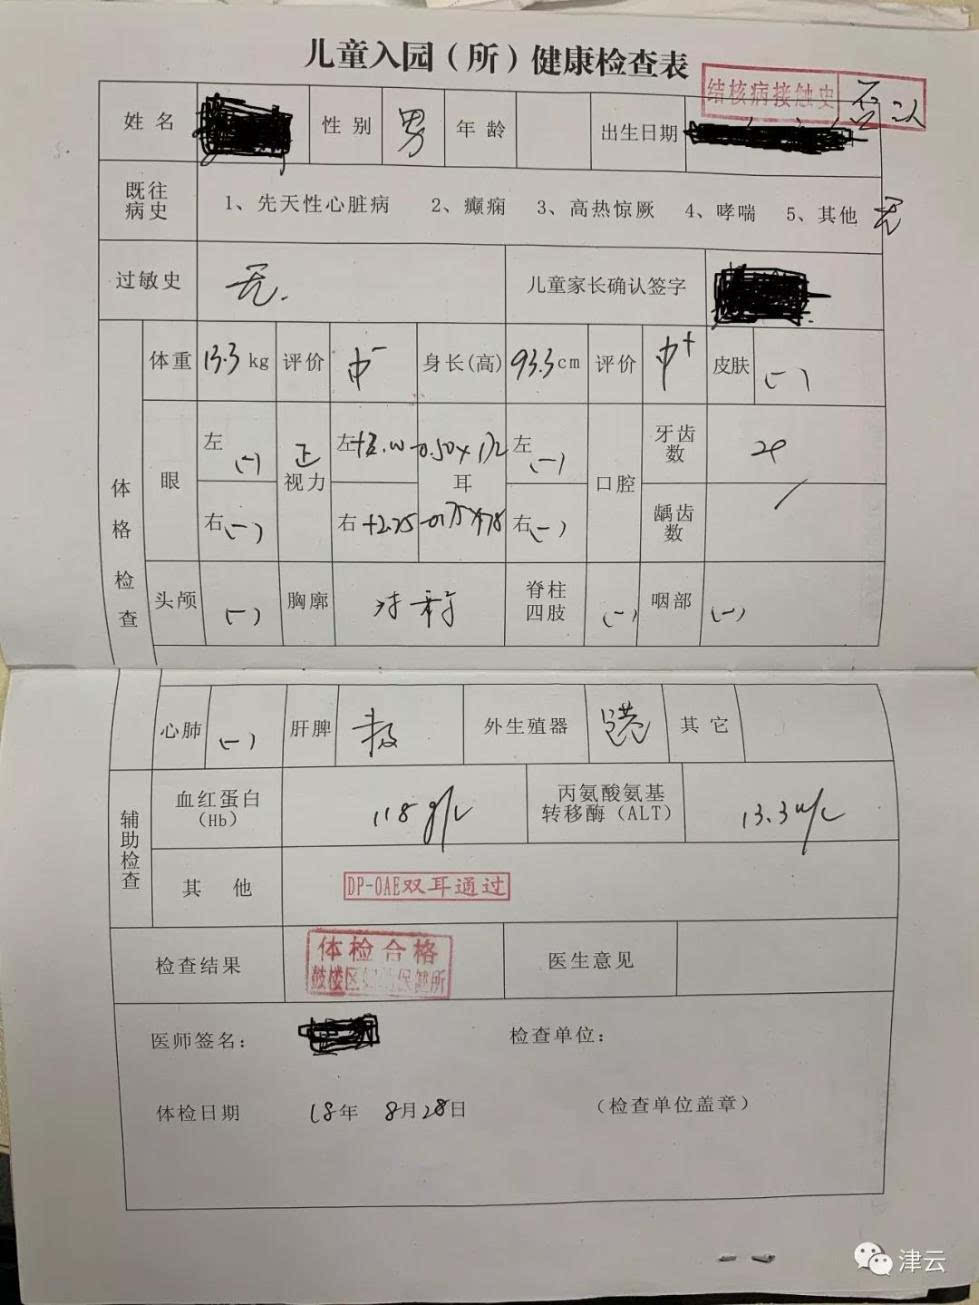 儿童入园（所）健康检查表
结核病接触史 否认
姓名 性别 男 年龄 出生日期
既往病史 1、先天性心脏病 2、癫痫 3、高热惊厥 4、哮喘 5、其他 无
过敏史 无. 儿童家长确认签字
体格检查
体重 13.3 kg 评价 中- 身长(高) 93.3 cm 评价 中+ 皮肤 (-)
眼 左 (-) 正 视力 左 耳 左 (-) 口腔 牙齿数
右 (-) 右 +2.75 右 (-) 龋齿数 /
头颅 (-) 胸廓 对称 脊柱四肢 (-) 咽部 (-)
心肺 (-) 肝脾 外生殖器 其它
辅助检查
血红蛋白（Hb） 118 g/L 丙氨酸氨基转移酶（ALT） 13.3 u/L
其他 DP-OAE双耳通过
检查结果 体检合格 医生意见
鼓楼区 保健所
医师签名： 检查单位：
体检日期 18年 8月28日 （检查单位盖章）
津云